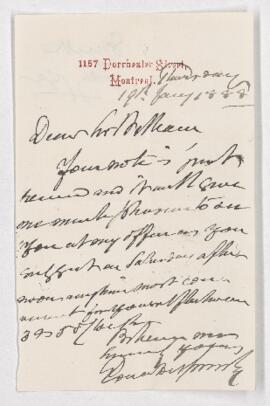 1157 Dorchester Street,
Montreal.
Thursday
19th Jany 1888
Dear Mr
Your note is just
received and it will give
me much pleasure to see
you at my office as you
suggest on Saturday after
noon any hour most con
venient for you
3
Believe me
yours